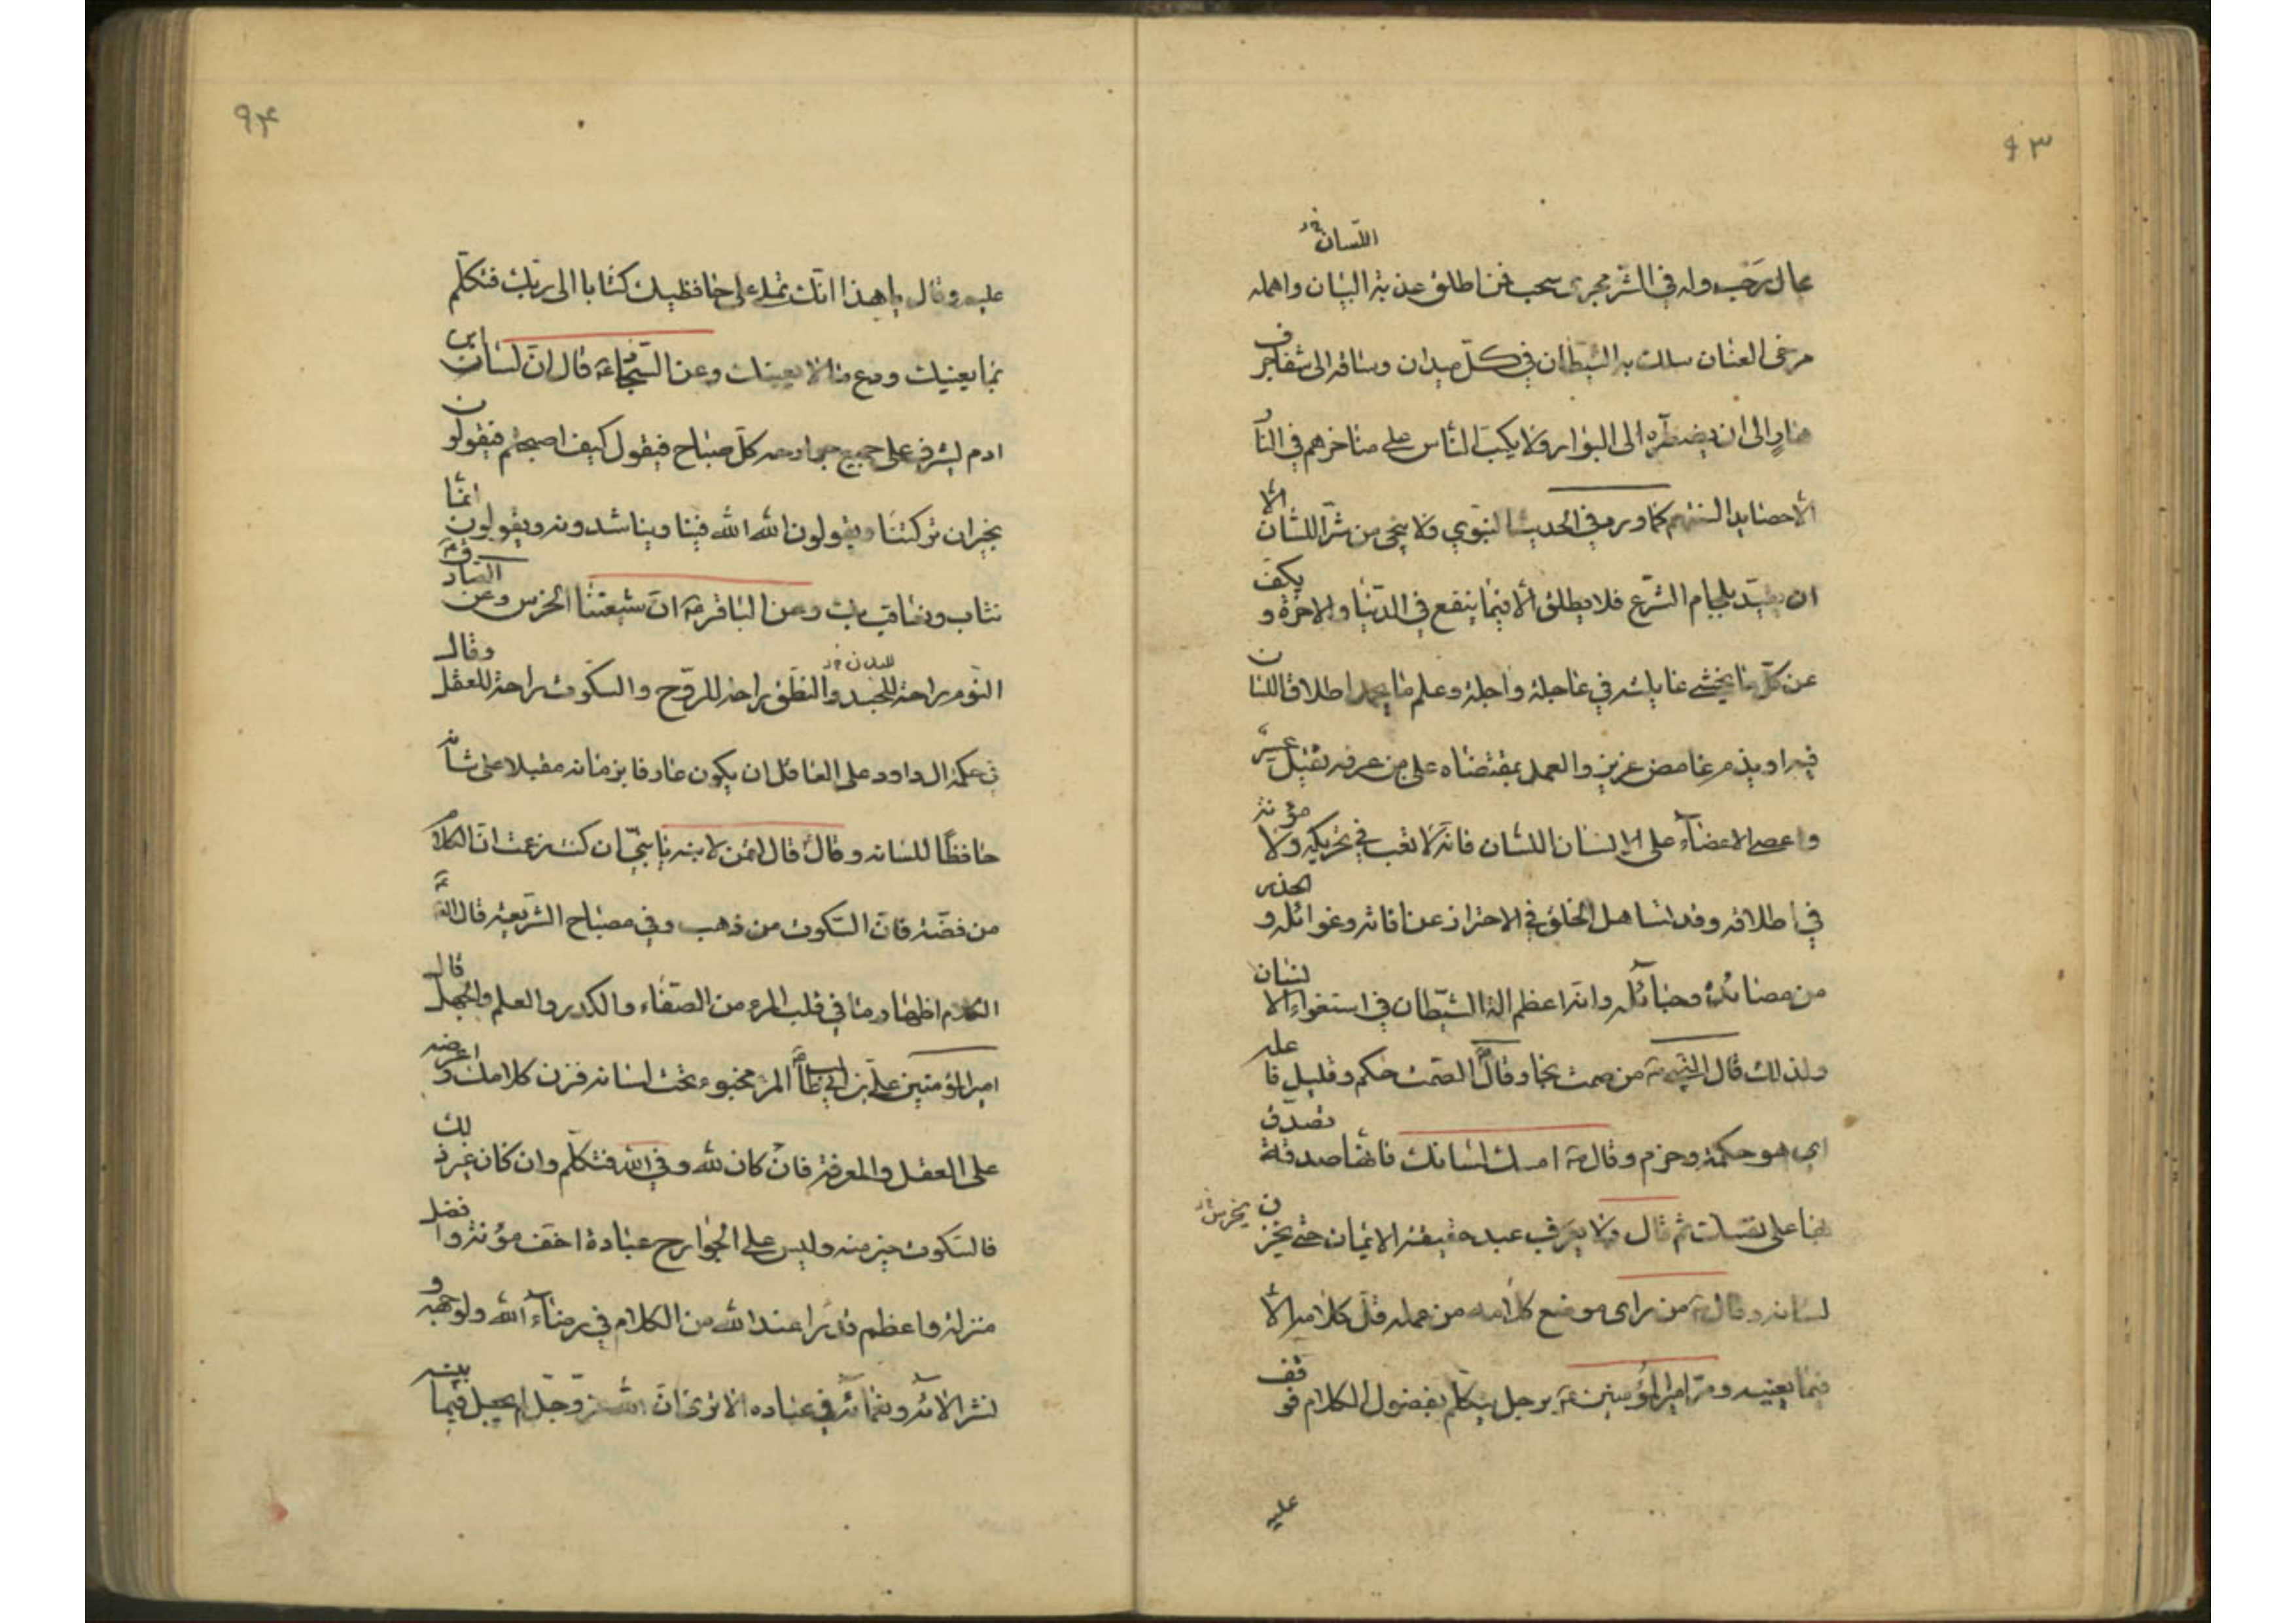 ٩٣
اللسان خ‌د
مجال رحب وله في الشر مجرى سحب فمن اطلق عذبة البيان واهمله
مرخى العنان سلك به الشيطان في كلّ ميدان وساقه الى شفا جرف
هارٍ الى ان يضطرّه الى البوار ولا يكبّ الناس على مناخرهم في النار
الّا حصايد السنتهم كما ورد في الحديث النبوي ولا ينجى من شرّ اللسان الّا
ان يقيّد بلجام الشرع فلا يطلق الّا فيما ينفع في الدّنيا والاخرة و يكفّ
عن كلّ ما يخشى غايلته في عاجله واجله وعلم ما يحمد اطلاق اللسان
فيه او يذم غامض عزيز والعمل بمقتضاه على من عرفه ثقيل عسير
واعصى الاعضآء على الانسان اللسان فانه لا تعب في تحريكه ولا مؤنة
في اطلاقه وقد تساهل الخلق في الاحتراز عن افاته وغوائله و الحذر
من مصائده وحبائله وانه اعظم الة الشيطان في استغواء الانسان
ولذلك قال النبي ص من صمت نجا وقال ص الصمت حكم وقليل فاعله
اي هو حكمة وحزم وقال ص امسك لسانك فانها صدقة تصدق
بها على نفسك ثم قال ولا يعرف عبد حقيقة الايمان حتى يخزن يخرس خ‌د
لسانه وقال ص من راى موضع كلامه من عمله قلّ كلامه الّا
فيما يعنيه ومرّ امير المؤمنين ع برجل يتكلّم بفضول الكلام فوقف
عليه
٩٤
عليه وقال يا هذا انّك تملى على حافظيك كتابا الى ربّك فتكلّم
بما يعنيك ودع ما لا يعنيك وعن السجّاد ع قال انّ لسان ابن
ادم يشرف على جميع جوارحه كلّ صباح فيقول كيف اصبحتم فيقولون
بخير ان تركتنا ويقولون الله الله فينا ويناشدونه ويقولون انمّا
نثاب ونعاقب بك وعن الباقر ع انّ شيعتنا الخرس وعن الصّادق ع
النّوم راحة للجسد والنطق راحة للروح والسّكوت راحة للعقل وقال
للبدن خ‌د
في حكمة ال داود على العاقل ان يكون عارفا بزمانه مقبلا على شانه
حافظًا للسانه وقال قال لقمن لابنه يا بنيّ ان كنت زعمت انّ الكلام
من فضّة فانّ السّكوت من ذهب وفي مصباح الشّريعة قال الصّ ع
الكلام اظهار ما في قلب المرء من الصّفاء والكدر والعلم والجهل قال
امير المؤمنين علي بن ابي طالب المرء مخبوء تحت لسانه فزن كلامك واعرضه
على العقل والمعرفة فان كان لله وفي الله فتكلّم وان كان غير ذلك
فالسّكوت خير منه وليس على الجوارح عبادة اخفّ مؤنة وافضل
منزلة واعظم قدرا عند الله من الكلام في رضآء الله ولوجهه و
نشر الآئه ونعمائه في عباده الا ترى انّ الله عزّ وجلّ لم يجعل فيما بينه